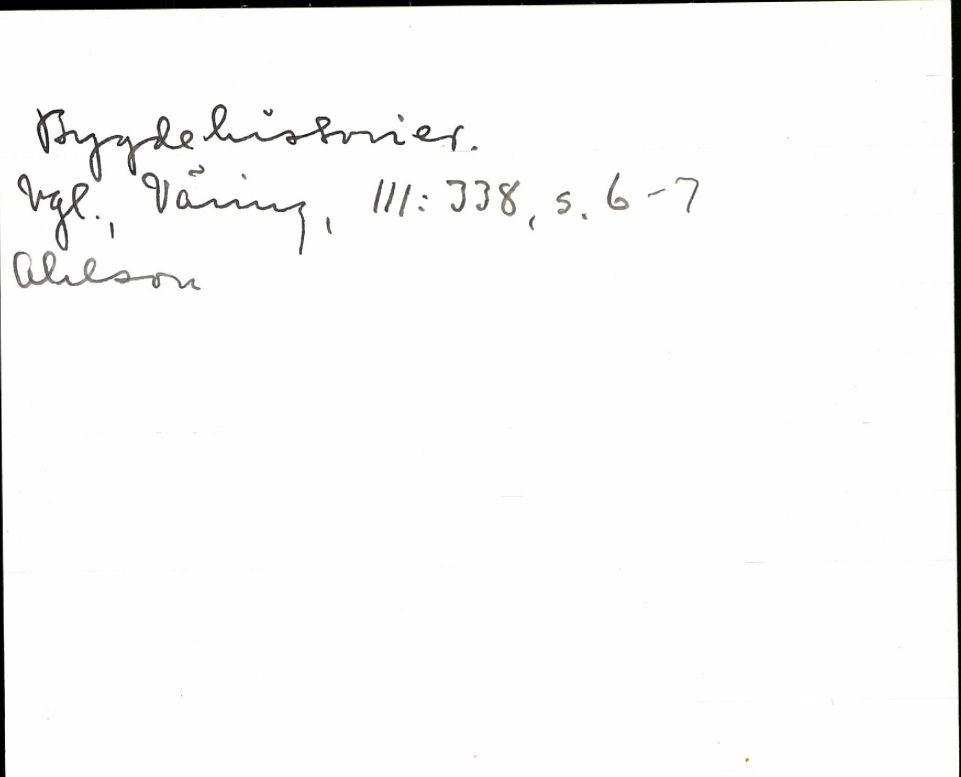 Bygdehistorier.
Vgl., Väring, III: 338, s. 6-7
Ahlson